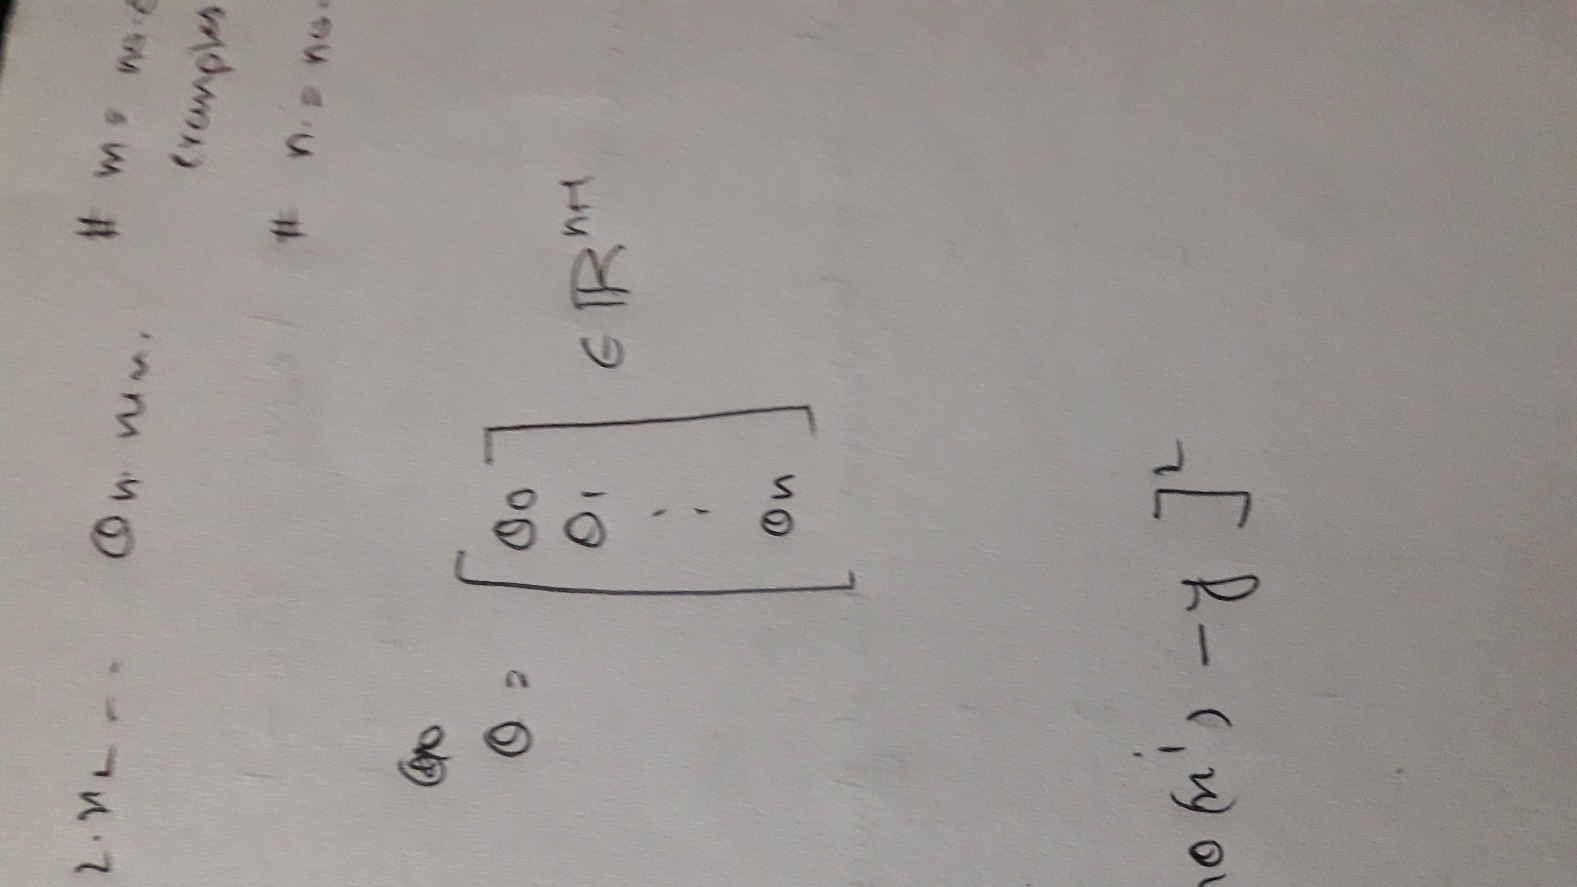 2 · x₂ - - . θn xn.
# m = no.
examples
# n = no.
θ = [θ0 θ1 : θn] ∈ ℝⁿ⁺¹
θ(xⁱ) - y ]²